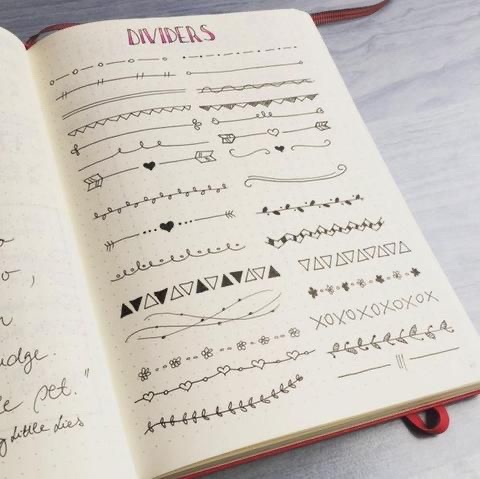 DIVIDERS
XOXOXOXOXOX
o
o,
n
udge.
e pet."
g little lies